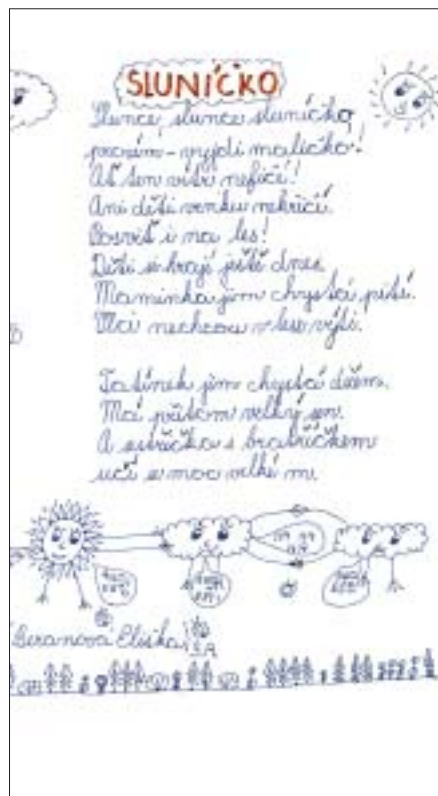 SLUNÍČKO
Slunce, slunce sluníčko,
prosím - vyjdi maličko!
Ať ten vítr nefičí!
Ani děti venku nekřičí.
Posviť i na les!
Děti si hrají ještě dnes.
Maminka jim chystá pití.
Má nechcou v lese výti.
Tatínek jim chystá džem.
Má přitom velký sen.
A sestřička s bratříčkem
učí se moc velké m.
Beranová Eliška